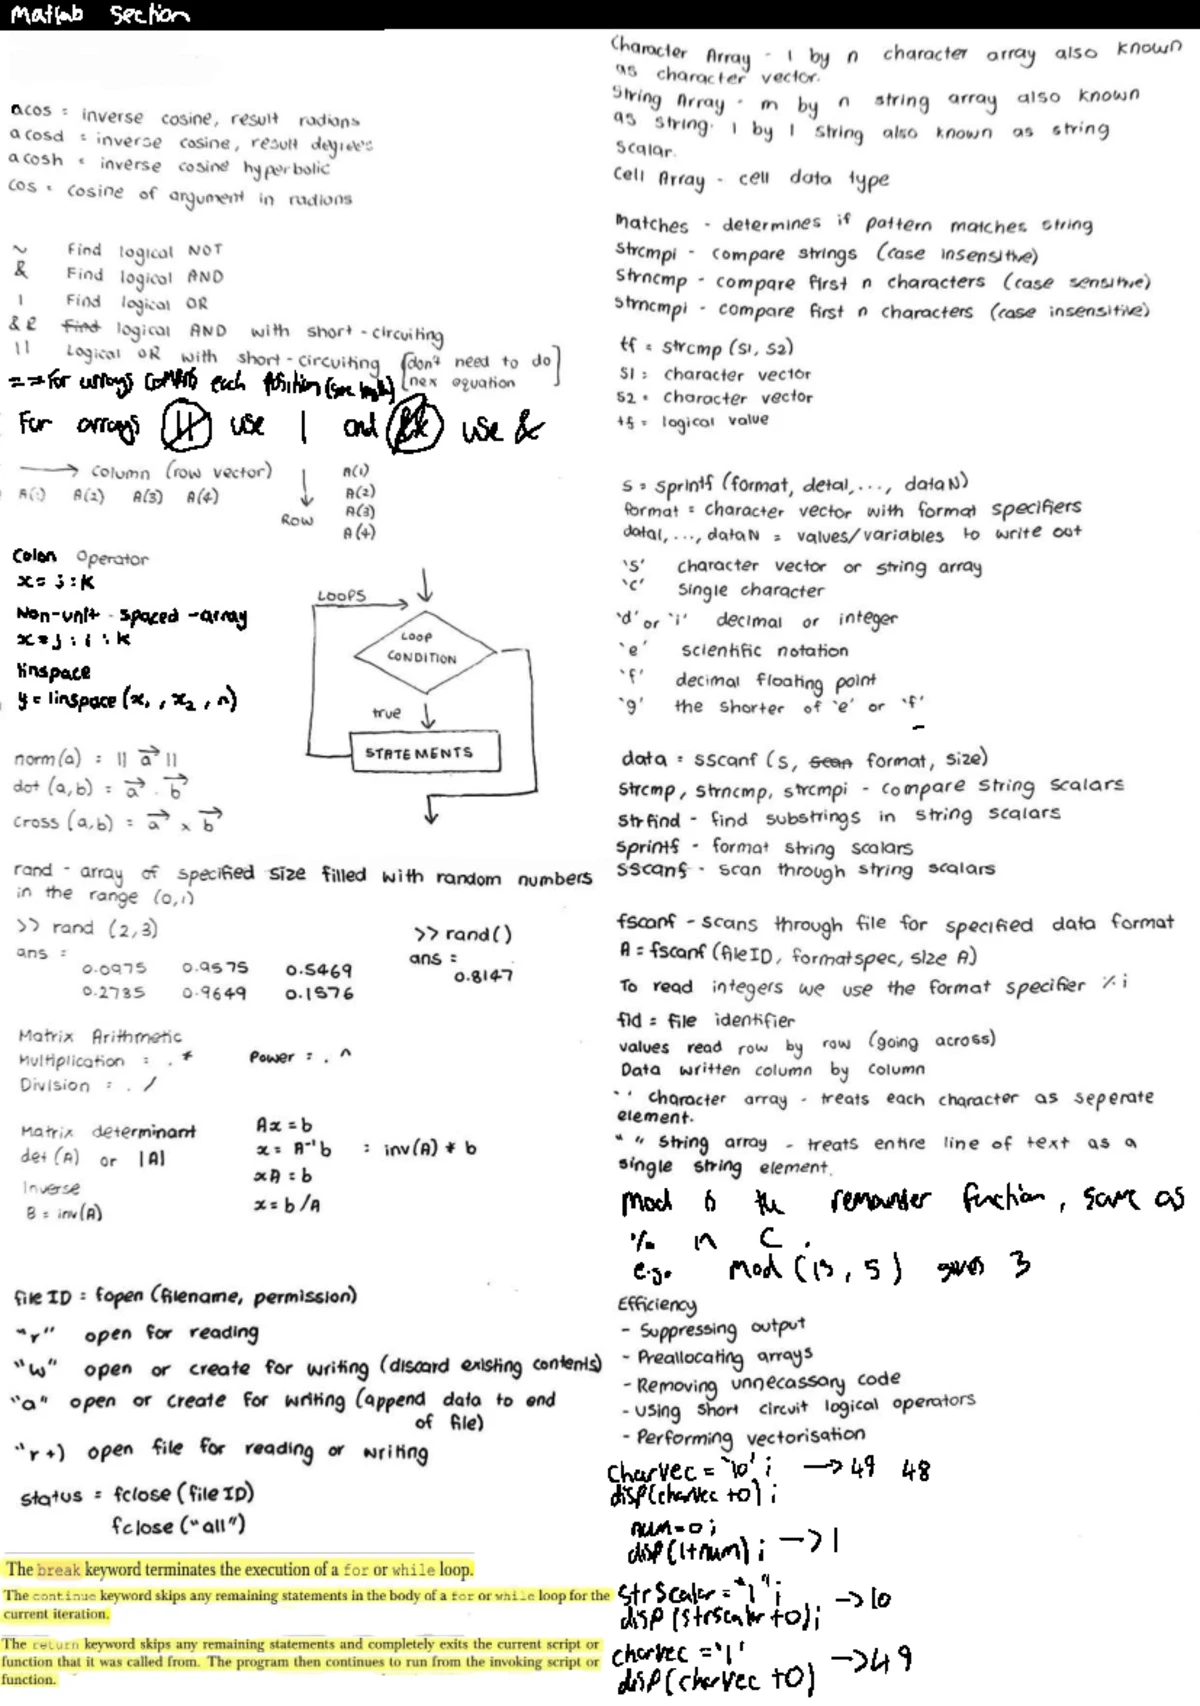 Matlab Section
acos = inverse cosine, result radians
acosd = inverse cosine, result degrees
acosh = inverse cosine hyperbolic
cos = cosine of argument in radians
~ Find logical NOT
& Find logical AND
| Find logical OR
&& Find logical AND with short-circuiting
|| Logical OR with short-circuiting [don't need to do
nex equation]
== for arrays each position
For arrays || use | and && use &
→ column (row vector)
A(1) A(2) A(3) A(4)
Row
A(1)
A(2)
A(3)
A(4)
Colon Operator
x = j:k
Non-unit-spaced-array
x = j:i:k
linspace
y = linspace(x₁, x₂, n)
LOOPS
LOOP
CONDITION
true
STATEMENTS
norm(a) = ||a⃗||
dot(a,b) = a⃗ . b⃗
cross(a,b) = a⃗ × b⃗
rand - array of specified size filled with random numbers
in the range (0,1)
>> rand (2,3)
ans =
0.0975 0.9575 0.5469
0.2785 0.9649 0.1576
>> rand()
ans =
0.8147
Matrix Arithmetic
Multiplication = .*
Division = ./
Power = .^
Matrix determinant
det(A) or |A|
Inverse
B = inv(A)
Ax = b
x = A⁻¹b = inv(A) * b
xA = b
x = b/A
file ID = fopen (filename, permission)
"r" open for reading
"w" open or create for writing (discard existing contents)
"a" open or create for writing (append data to end
of file)
"r+) open file for reading or writing
status = fclose(file ID)
fclose("all")
The break keyword terminates the execution of a for or while loop.
The continue keyword skips any remaining statements in the body of a for or while loop for the
current iteration.
The return keyword skips any remaining statements and completely exits the current script or
function that it was called from. The program then continues to run from the invoking script or
function.
Character Array - 1 by n character array also known
as character vector.
String Array - m by n string array also known
as string. 1 by 1 string also known as string
scalar.
Cell Array - cell data type
matches - determines if pattern matches string
strcmpi - compare strings (case insensitive)
strncmp - compare first n characters (case sensitive)
strncmpi - compare first n characters (case insensitive)
tf = strcmp (S1, S2)
S1 = character vector
S2 = character vector
tf = logical value
s = sprintf (format, deta1, ..., dataN)
format = character vector with format specifiers
data1, ..., dataN = values/variables to write out
's' character vector or string array
'c' single character
'd' or 'i' decimal or integer
'e' scientific notation
'f' decimal floating point
'g' the shorter of 'e' or 'f'
data = sscanf (s, scan format, size)
strcmp, strncmp, strcmpi - compare string scalars
strfind - find substrings in string scalars
sprintf - format string scalars
sscanf - scan through string scalars
fscanf - scans through file for specified data format
A = fscanf (file ID, formatspec, size A)
To read integers we use the format specifier %i
fid = file identifier
values read row by row (going across)
Data written column by column
' ' character array - treats each character as seperate
element.
" " string array - treats entire line of text as a
single string element.
mod is the remainder function, same as
% in C.
e.g. mod (13, 5) gives 3
Efficiency
- Suppressing output
- Preallocating arrays
- Removing unnecassary code
- Using short circuit logical operators
- Performing vectorisation
charVec = '10'; → 49 48
disp(charVec + 0);
num = 0;
disp(1+num); → 1
strScalar = "1";
disp(strScalar + 0); → 10
charVec = '1'
disp(charVec + 0) → 49